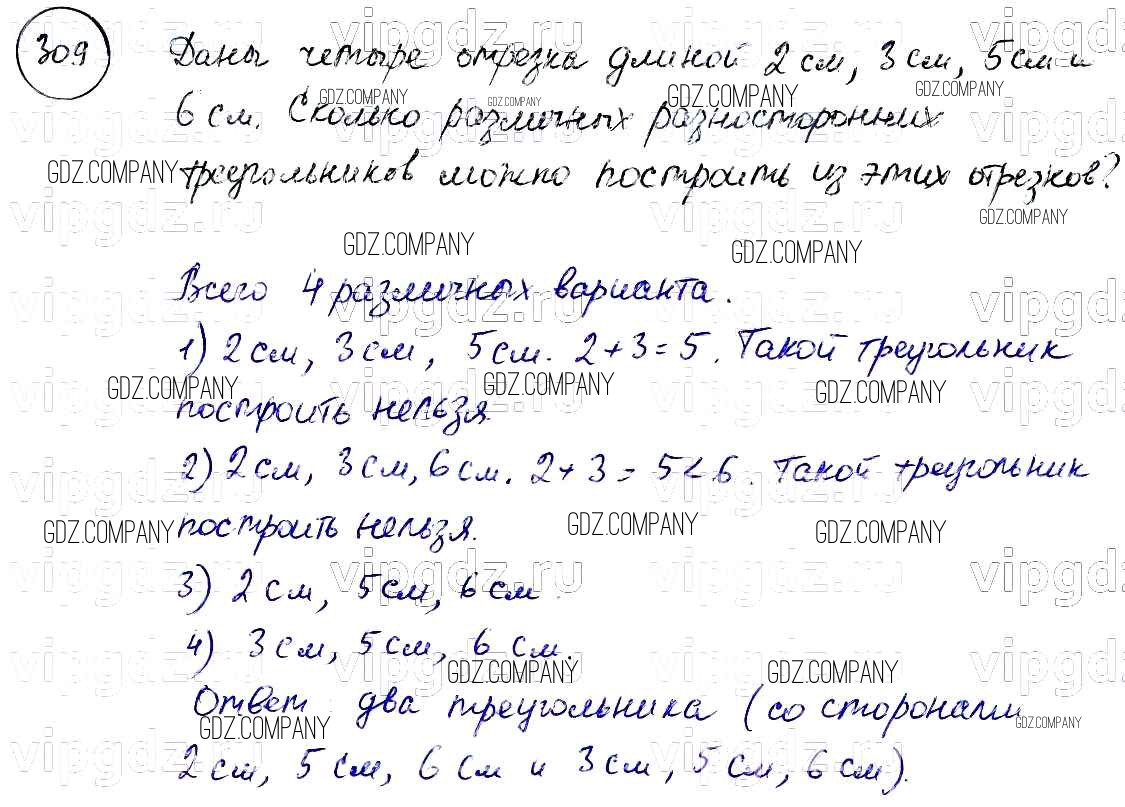 309 Даны четыре отрезка длиной 2 см, 3 см, 5 см и
6 см. Сколько различных разносторонних
треугольников можно построить из этих отрезков?
Всего 4 различных варианта.
1) 2 см, 3 см, 5 см. 2 + 3 = 5. Такой треугольник
построить нельзя.
2) 2 см, 3 см, 6 см. 2 + 3 = 5 < 6. Такой треугольник
построить нельзя.
3) 2 см, 5 см, 6 см.
4) 3 см, 5 см, 6 см.
Ответ два треугольника (со сторонами
2 см, 5 см, 6 см и 3 см, 5 см, 6 см).